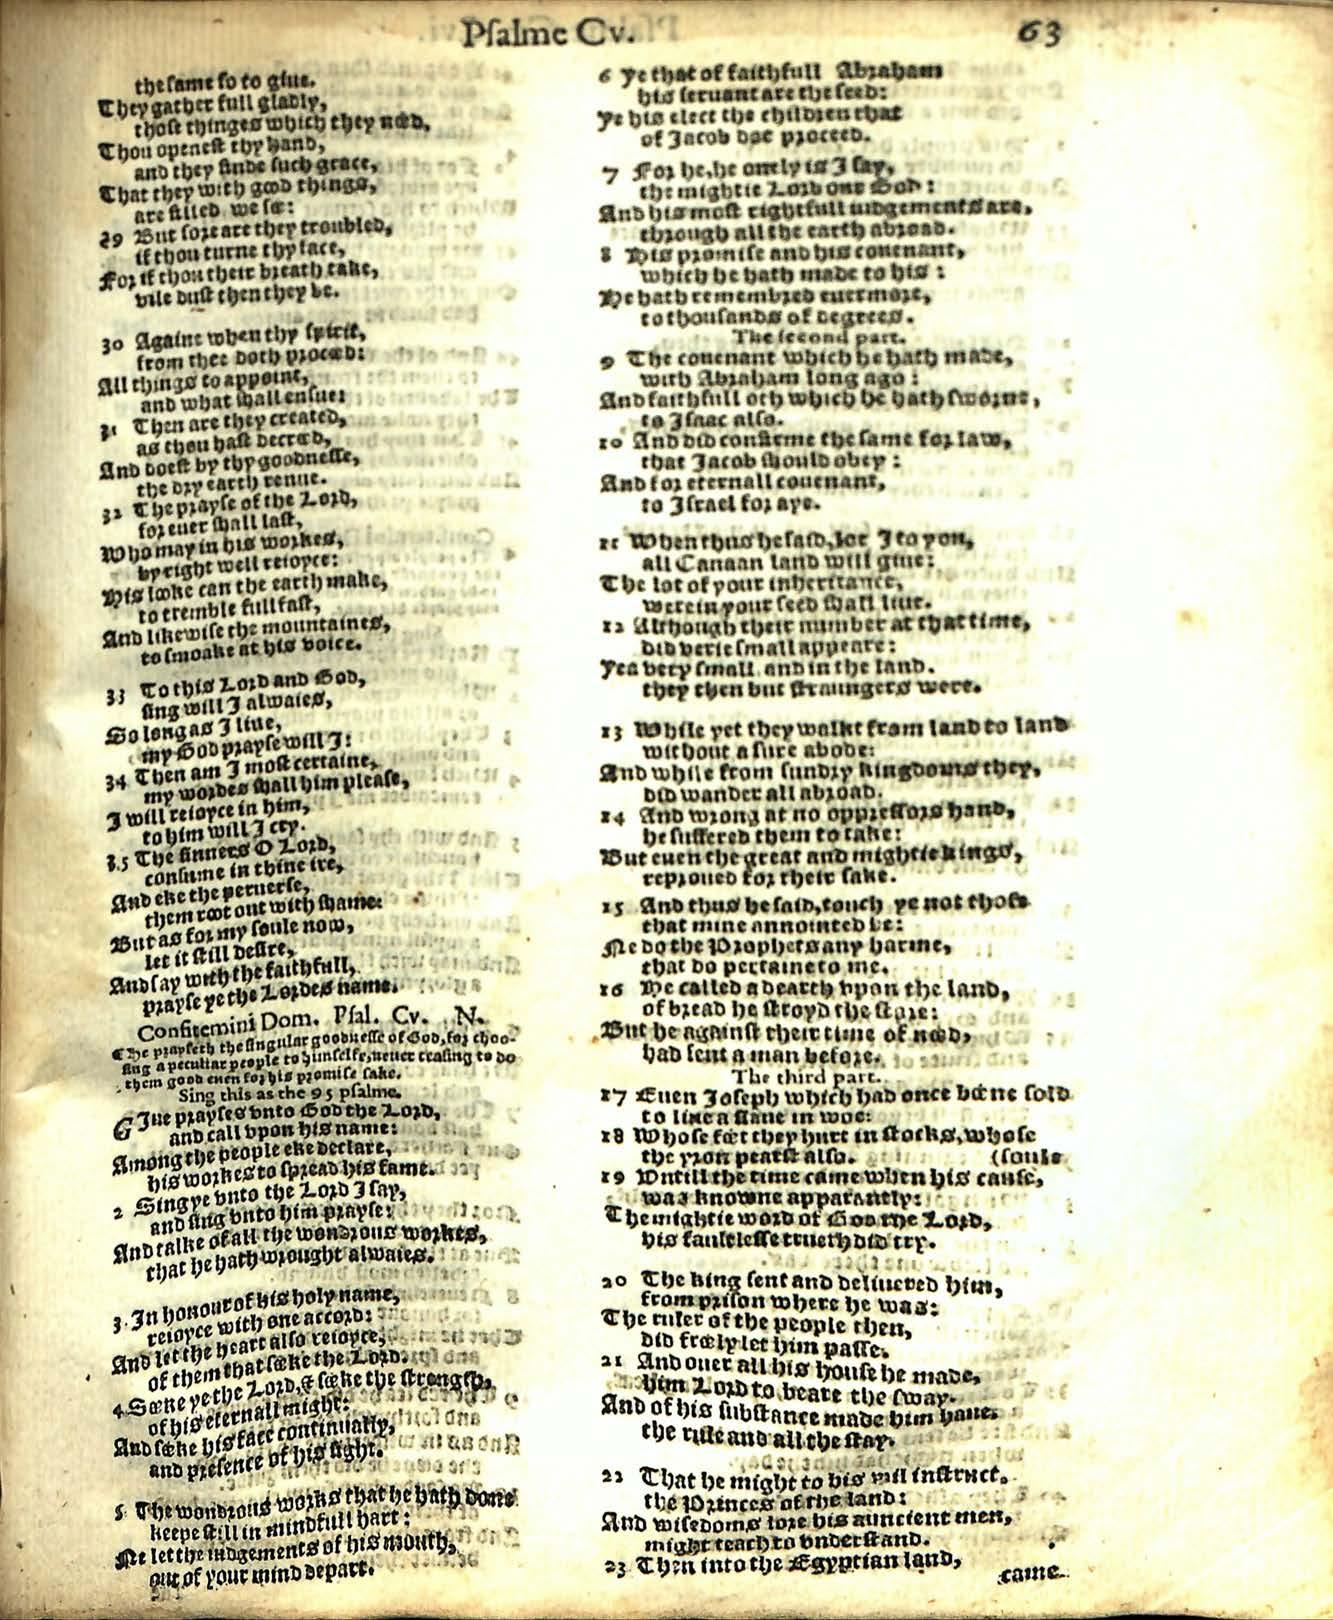 Psalme Cv. 63
the same so to giue.
They gather full gladly,
those thinges which they nœd,
Thou openest thy hand,
and they finde such grace,
That they with gœd things,
are filled we sœ:
29 But sore are they troubled,
if thou turne thy face,
For if thou their breath take,
vile dust then they be.
30 Againe when thy spirit,
from thee doth procœd:
All things to appoint,
and what shall ensue:
31 Then are they created,
as thou hast decrœd,
And doest by thy goodnesse,
the dry earth renue.
32 The prayse of the Lord,
for euer shall last,
Who may in his workes,
by right well reioyce:
His lœke can the earth make,
to tremble full fast,
And likewise the mountaines,
to smoake at his voice.
33 To this Lord and God,
sing will I alwaies,
So long as I liue,
my God prayse will I:
34 Then am I most certaine,
my wordes shall him please,
I will reioyce in him,
to him will I cry.
35 The sinners O Lord,
consume in thine ire,
And eke the peruerse,
them rœt out with shame:
But as for my soule now,
let it still desire,
And say with the faithfull,
prayse ye the Lordes name.
Confitemini Dom. Psal. Cv. N.
¶ He prayseth the singular goodnesse of God, for choo-
sing a peculiar people to himselfe, neuer ceasing to do
them good euen for his promise sake.
Sing this as the 95 psalme.
GIue prayses vnto God the Lord,
and call vpon his name:
Among the people eke declare,
his workes to spread his fame.
2 Sing ye vnto the Lord I say,
and sing vnto him prayse:
And talke of all the wondrous workes,
that he hath wrought alwaies.
3 In honour of his holy name,
reioyce with one accord:
And let the heart also reioyce,
of them that sœke the Lord.
4 Sœke ye the Lord, & sœke the strength,
of his eternall might:
And sœke his face continually,
and presence of his sight.
5 The wondrous works that he hath done
keepe still in mindfull hart:
Ne let the iudgements of his mouth,
out of your mind depart.
6 Ye that of faithfull Abraham
his seruant are the seed:
Ye his elect the children that
of Jacob doe proceed.
7 For he, he onely is I say,
the mightie Lord our God:
And his most rightfull iudgements are,
through all the earth abroad.
8 His promise and his couenant,
which he hath made to his:
He hath remembred euermore,
to thousands of degrees.
The second part.
9 The couenant which he hath made,
with Abraham long ago:
And faithfull oth which he hath sworne,
to Isaac also.
10 And did confirme the same for law,
that Jacob should obey:
And for eternall couenant,
to Israel for aye.
11 When thus he said, loe I to you,
all Canaan land will giue:
The lot of your inheritance,
werein your seed shall liue.
12 Although their number at that time,
did verie small appeare:
Yea very small and in the land.
they then but straungers were.
13 While yet they walkt from land to land
without a sure abode:
And while from sundry kingdoms they,
did wander all abroad.
14 And wrong at no oppressors hand,
he suffered them to take:
But euen the great and mightie kings,
reproued for their sake.
15 And thus he said, touch ye not those
that mine annointed be:
Ne do the Prophets any harme,
that do pertaine to me.
16 He called a dearth vpon the land,
of bread he stroyd the store:
But he against their time of nœd,
had sent a man before.
The third part.
17 Euen Joseph which had once bœne sold
to liue a slaue in woe:
18 Whose fœt they hurt in stocks, whose
the yron pearst also. (soule
19 Vntill the time came when his cause,
was knowne apparantly:
The mightie word of God the Lord,
his faultlesse trueth did try.
20 The king sent and deliuered him,
from prison where he was:
The ruler of the people then,
did frœly let him passe.
21 And ouer all his house he made,
him Lord to beare the sway.
And of his substance made him haue.
the rule and all the stay.
22 That he might to his will instruct.
the Princes of the land:
And wisedoms lore his auncient men,
might teach to vnderstand.
23 Then into the Egyptian land,
came